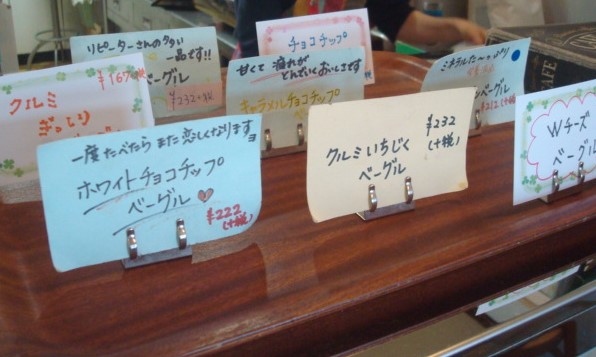 リピーターさんの多い
一品です!!
ベーグル
¥232+税
チョコチップ
甘くて
とんでいくおいしさです
キャラメルチョコチップ
ベーグル
ミネラルた〜っぷり
ベーグル
¥212(+税)
¥167+税
クルミ
ぎっしり
一度たべたら また恋しくなりますョ
ホワイトチョコチップ
ベーグル
¥222
(+税)
クルミいちじく
ベーグル
¥232
(+税)
Wチーズ
ベーグル
CAFE